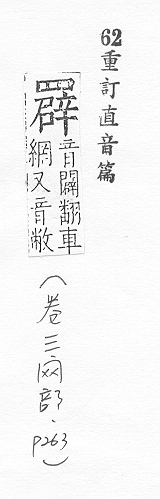 62重訂直音篇
䍤音闢翻車網又音敝
(卷三网部.P263)